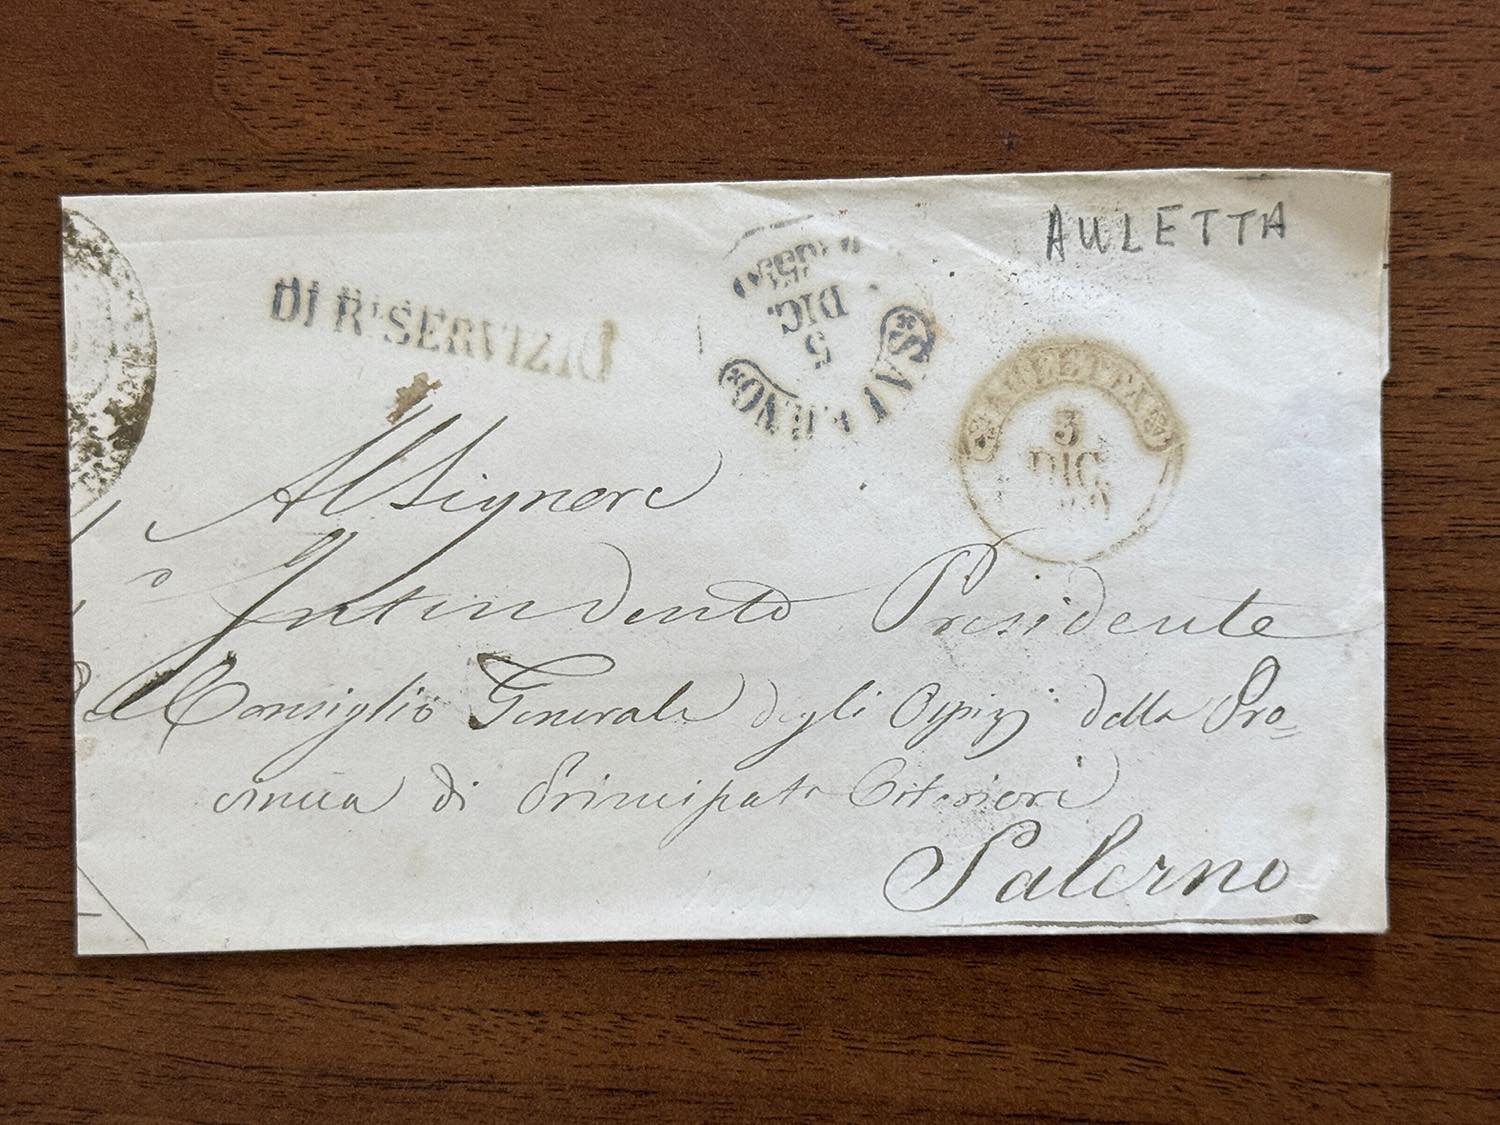 AULETTA
DI R' SERVIZIO
SALERNO
5
DIC.
AULETTA
3
DIC
Al Signore
Intendente Presidente
il Consiglio Generale degli Ospizj della Pro=
vincia di Principato Citeriore
Salerno